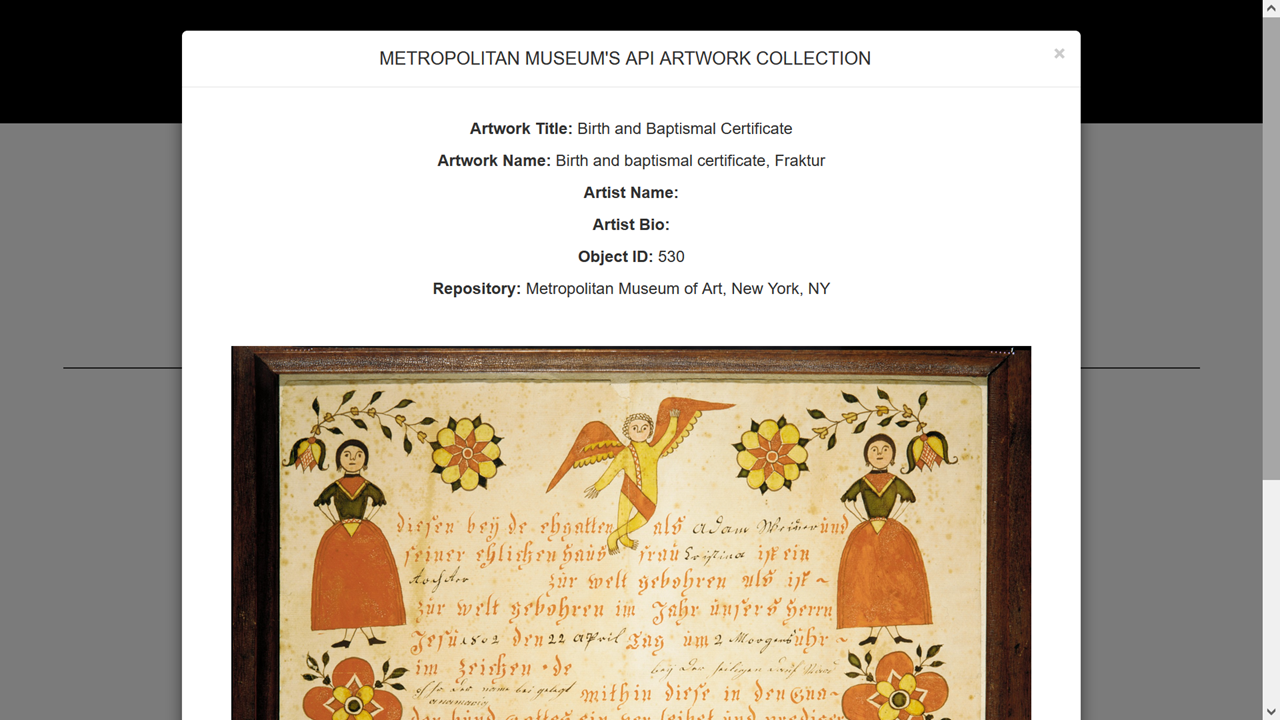 METROPOLITAN MUSEUM'S API ARTWORK COLLECTION
×
Artwork Title: Birth and Baptismal Certificate
Artwork Name: Birth and baptismal certificate, Fraktur
Artist Name:
Artist Bio:
Object ID: 530
Repository: Metropolitan Museum of Art, New York, NY
diesen beÿ de ehgatten als Adam und
seiner ehlichen haus frau ist ein
zur welt gebohren als ist ~
zur welt gebohren im Jahr unsers Herrn
Jesu 1802 den 22 April Tag um 2 Morgens uhr ~
im zeichen de
mithin diese in den Gna-